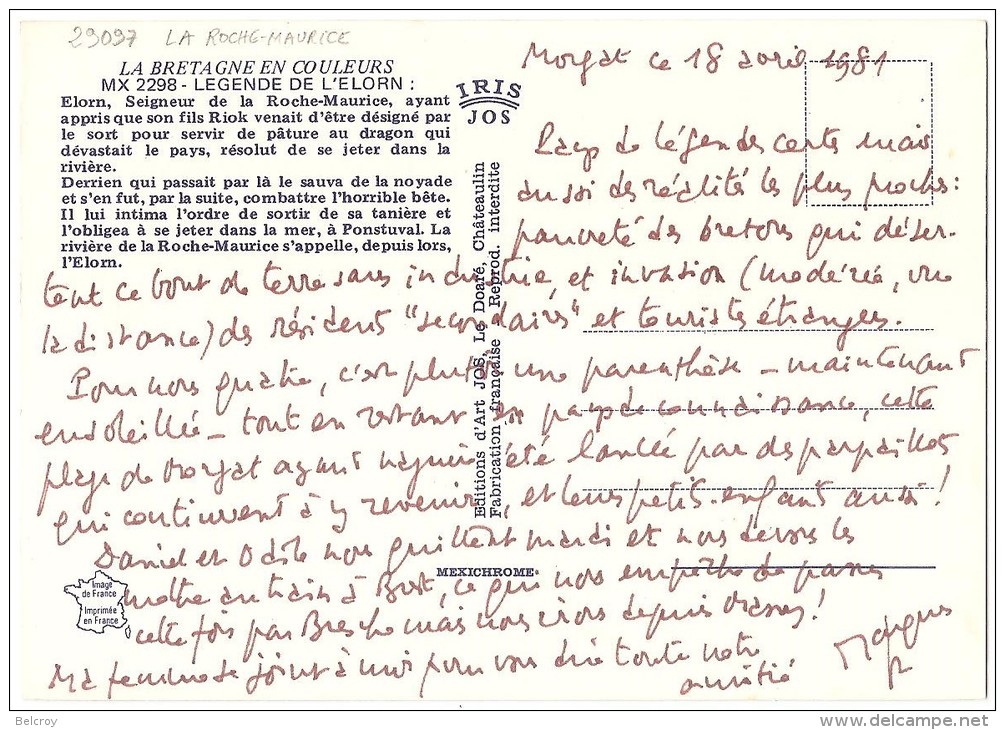 29097 LA ROCHE-MAURICE
LA BRETAGNE EN COULEURS
MX 2298 - LEGENDE DE L'ELORN :
Elorn, Seigneur de la Roche-Maurice, ayant
appris que son fils Riok venait d'être désigné par
le sort pour servir de pâture au dragon qui
dévastait le pays, résolut de se jeter dans la
rivière.
Derrien qui passait par là le sauva de la noyade
et s'en fut, par la suite, combattre l'horrible bête.
Il lui intima l'ordre de sortir de sa tanière et
l'obligea à se jeter dans la mer, à Ponstuval. La
rivière de la Roche-Maurice s'appelle, depuis lors,
l'Elorn.
IRIS
JOS
Editions d'Art JOS, Le Doaré, Châteaulin
Fabrication française - Reprod. interdite
MEXICHROME
Image
de France
Imprimée
en France
Morgat ce 18 avril 1981
Pays de légendes certes mais
aussi des réalités les plus proches :
pauvreté des bretons qui déser-
tent ce bout de terre sans industrie et invasion (modérée, vue
la distance) des résidents "secondaires" et touristes étrangers.
Pour nous quatre, c'est plutôt une parenthèse - maintenant
ensoleillée - tout en restant en pays de connaissance, cette
plage de Morgat ayant naguère été lancée par des parpaillots
qui continuent à y revenir, et leurs petits-enfants aussi !
Daniel et Odile nous quittent mardi et nous devons les
mettre au train à Brest, ce qui nous empêche de passer
cette fois par mais nous irons depuis !
Ma femme se joint à moi pour vous dire toute notre
amitié
Belcroy
www.delcampe.net